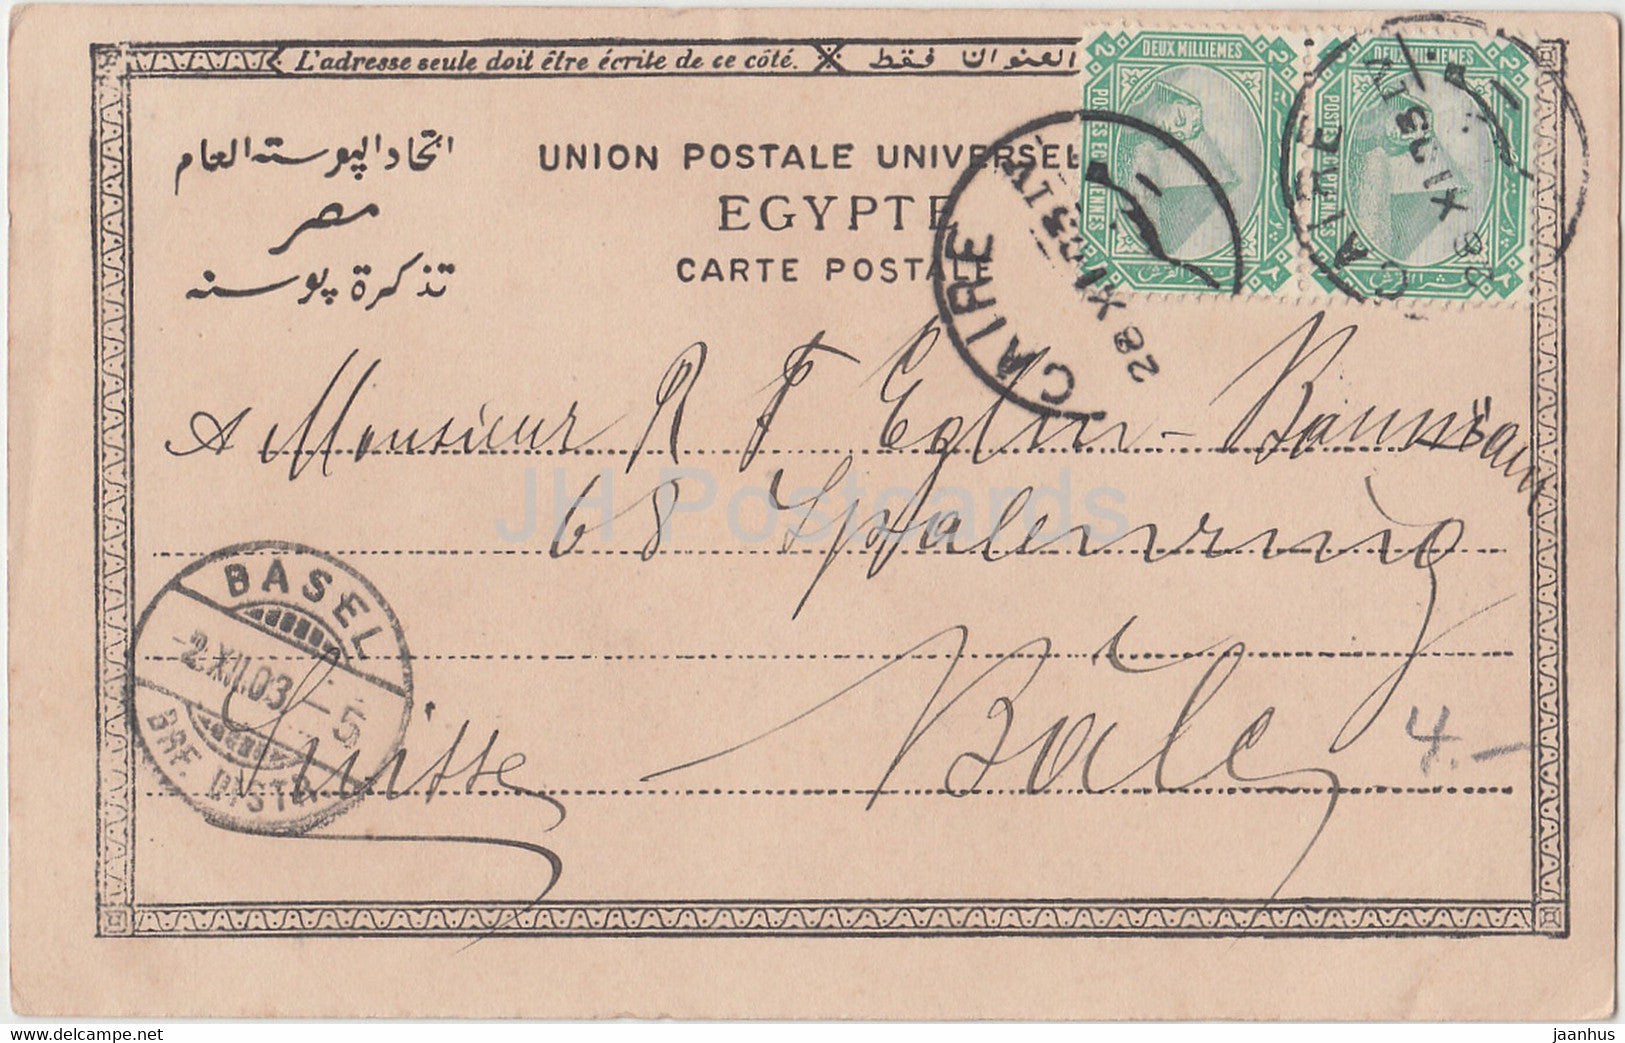 L'adresse seule doit être écrite de ce côté. العنوان فقط
اتحاد البوسته العام
UNION POSTALE UNIVERSELLE
مصر
EGYPTE
تذكرة بوسته
CARTE POSTALE
2 DEUX MILLIEMES 2
POSTES EGYPTIENNES
2 DEUX MILLIEMES 2
POSTES EGYPTIENNES
CAIRE
28 XI 03
CAIRE
28 XI 03
A Monsieur R F Eglin-
68 Spalenring
Bâle
Suisse
BASEL
-2.XII.03-5
BRF. DISTR.
4.-
JH Postcards
www.delcampe.net
jaanhus